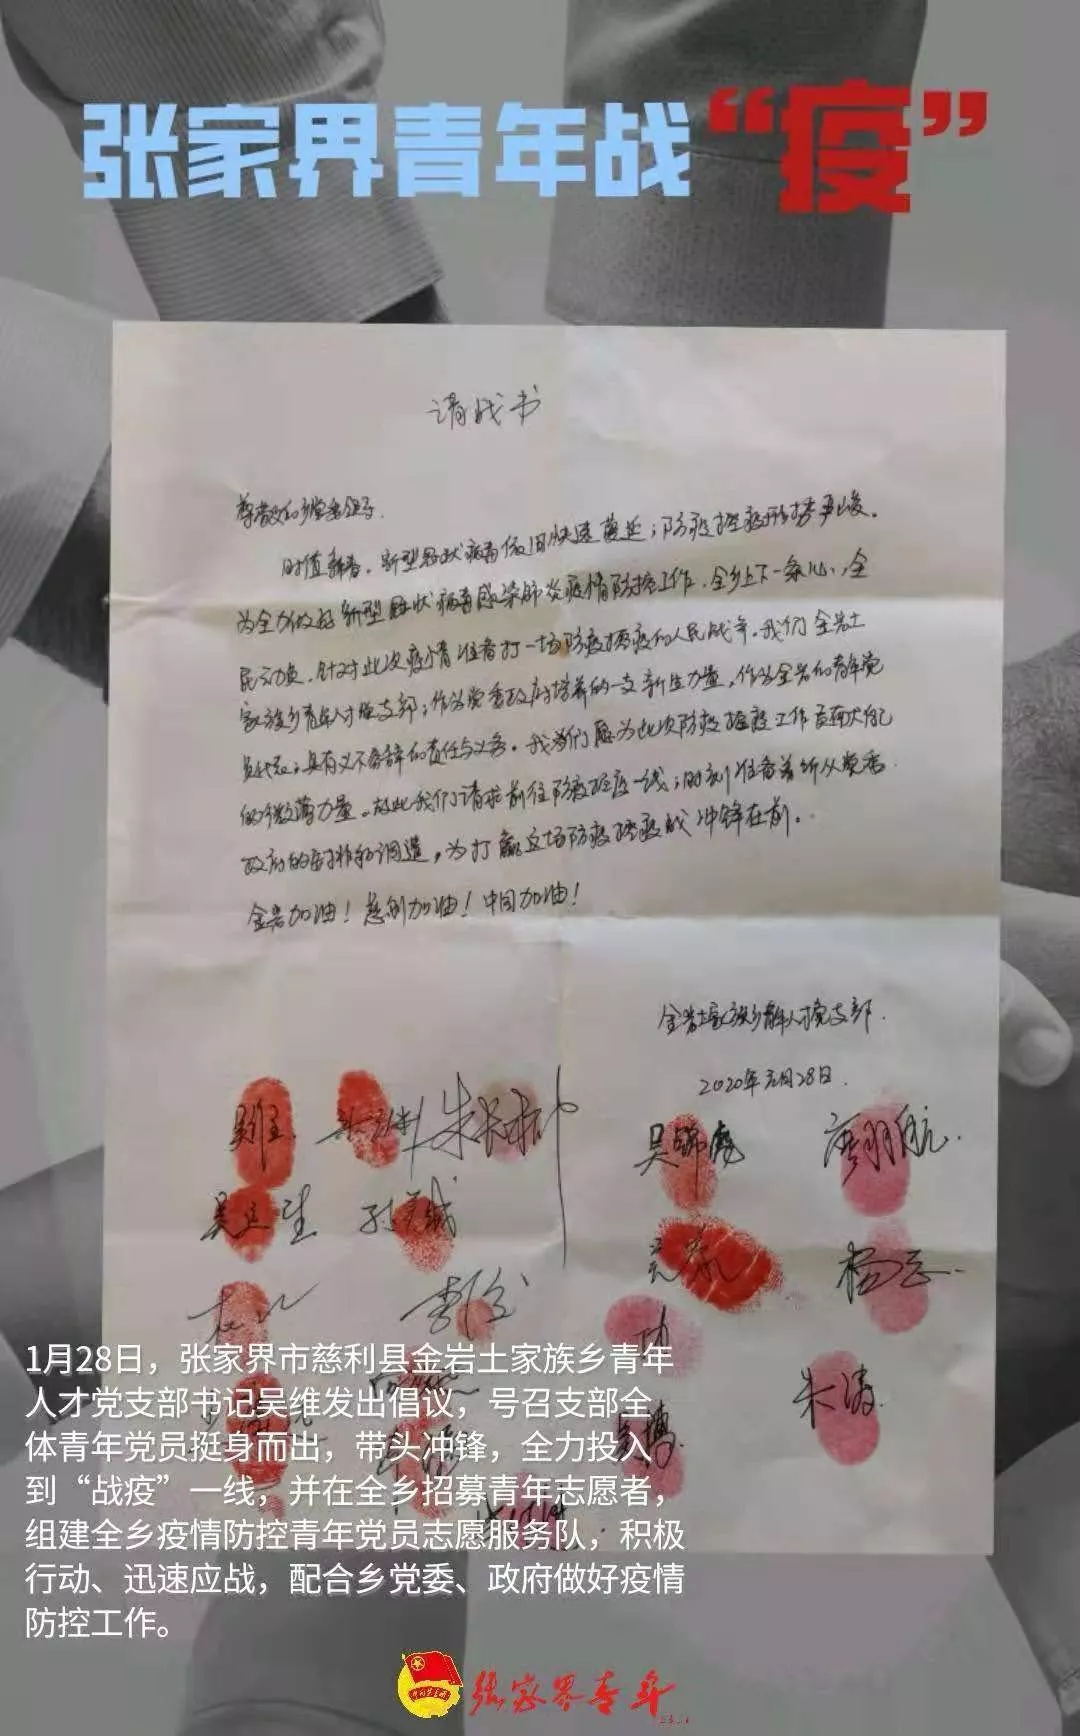 张家界青年战“疫”
请战书
尊敬的乡党委领导
时值新春，新型冠状病毒依旧快速蔓延，防疫控疫形势严峻。
为全力做好新型冠状病毒感染肺炎疫情防控工作，全乡上下一条心，全
民动员，针对此次疫情准备打一场防疫控疫的人民战争。我们金岩土
家族乡青年人才党支部，作为党委政府培养的一支新生力量，作为金岩的青年党
员代表，具有义不容辞的责任与义务。我们愿为此次防疫控疫工作贡献自己
的微薄力量。故此我们请求前往防疫控疫一线，时刻准备着听从党委
政府的安排和调遣，为打赢这场防疫控疫战冲锋在前。
金岩加油！慈利加油！中国加油！
金岩土家族乡青年人才党支部
2020年元月28日
吴维 朱长城 吴锦彪 廖羽航
吴运生
杨云
李俊
朱涛
1月28日，张家界市慈利县金岩土家族乡青年
人才党支部书记吴维发出倡议，号召支部全
体青年党员挺身而出，带头冲锋，全力投入
到“战疫”一线，并在全乡招募青年志愿者，
组建全乡疫情防控青年党员志愿服务队，积极
行动、迅速应战，配合乡党委、政府做好疫情
防控工作。
张家界青年